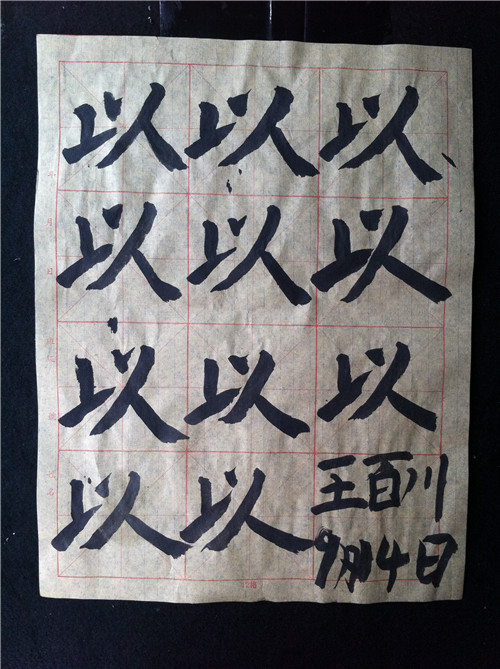 以以以
以以以
以以以
以以王百川
9月14日